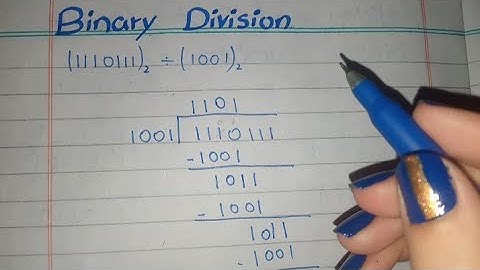 Binary Division
(1110111)₂ ÷ (1001)₂
1101
1001 1110111
-1001
1011
-1001
1011
-1001